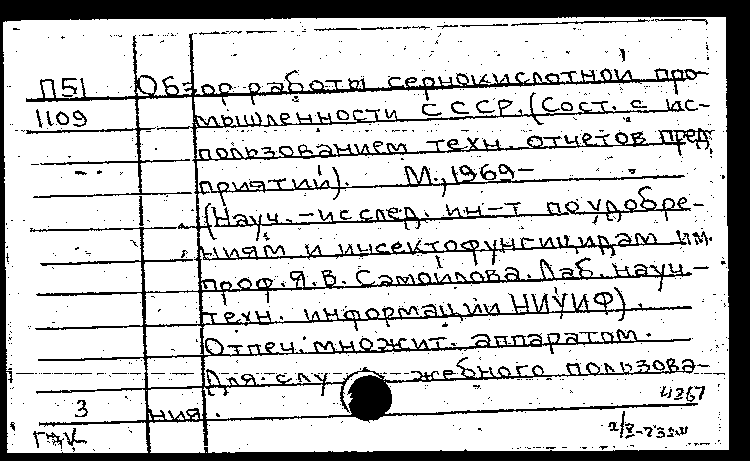 П51 Обзор работы сернокислотной про-
1109 мышленности СССР. (Сост. с ис-
пользованием техн. отчетов пред
приятий). М., 1969-
(Науч.-исслед. ин-т по удобре-
ниям и инсектофунгицидам им.
проф. Я. В. Самойлова. Лаб. науч-
техн. информации НИУИФ).
Отпеч. множит. аппаратом.
Для служебного пользова-
3 ния. 4267